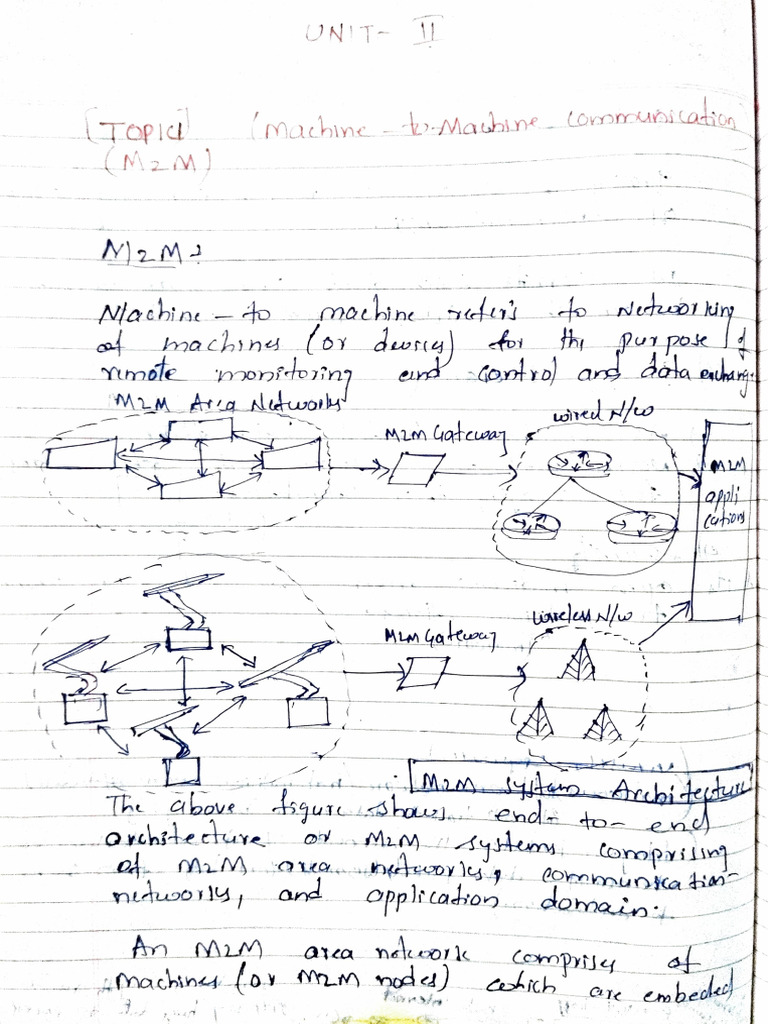 UNIT- II
[TOPIC] (Machine-to-Machine communication
(M2M)
M2M:
Machine-to machine refer's to Networking
of machines (or devices) for the purpose of
remote monitoring and control and data exchange.
M2M Area Networks
M2M Gateway
wired N/w
M2M
appli
cations
M2M Gateway
wireless N/w
M2M system Architecture
The above figure shows end-to-end
architecture or M2M systems comprising
of M2M area networks, communication-
networks, and application domain.
An M2M area network comprises of
machines (or M2M nodes) which are embeded